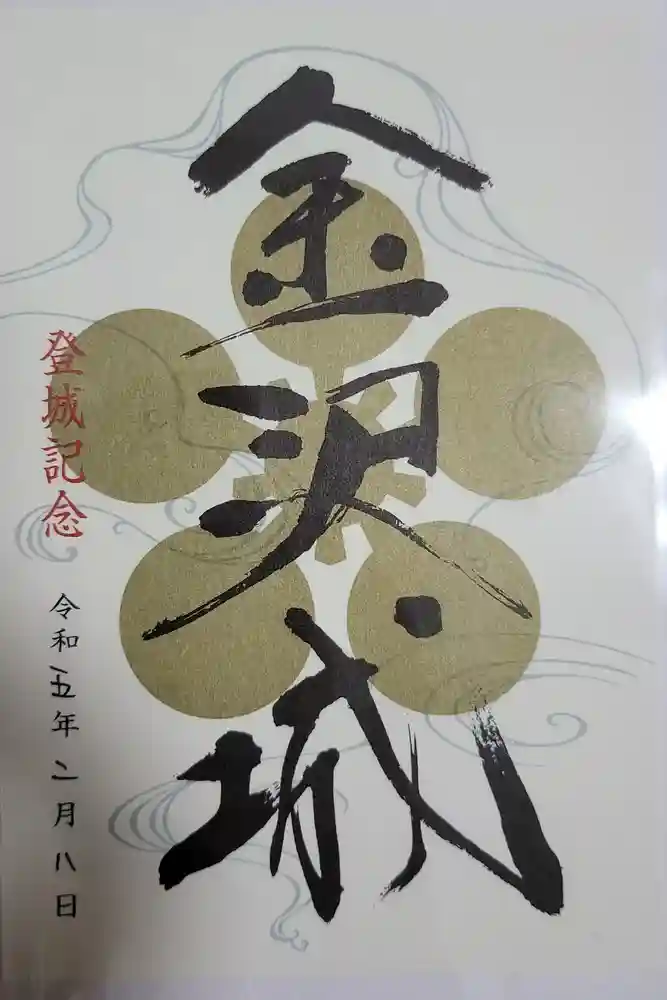 金沢城
登城記念
令和五年二月八日